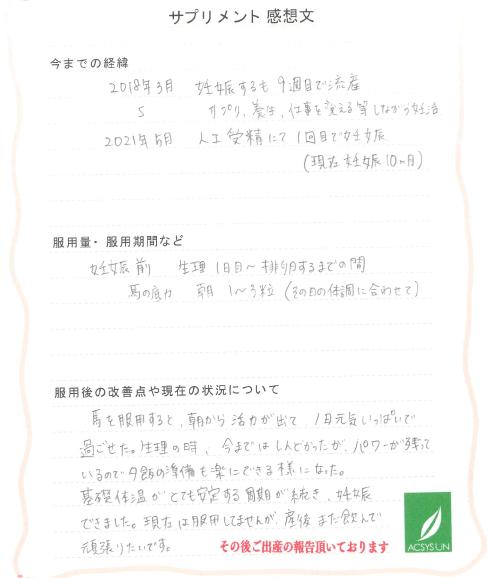 サプリメント 感想文
今までの経緯
2018年3月 妊娠するも 9週目で流産
S サプリ、養生、仕事を変える等しながら妊活
2021年5月 人工受精にて 1回目で妊娠
(現在妊娠10ヶ月)
服用量・服用期間など
妊娠前 生理1日目〜排卵するまでの間
馬の底力 朝 1〜3粒 (その日の体調に合わせて)
服用後の改善点や現在の状況について
馬を服用すると、朝から活力が出て、1日元気いっぱいで
過ごせた。生理の時、今まではしんどかったが、パワーが残って
いるので夕飯の準備も楽にできる様になった。
基礎体温がとても安定する周期が続き、妊娠
できました。現在は服用してませんが、産後また飲んで
頑張りたいです。
その後ご出産の報告頂いております
ACSYSUN